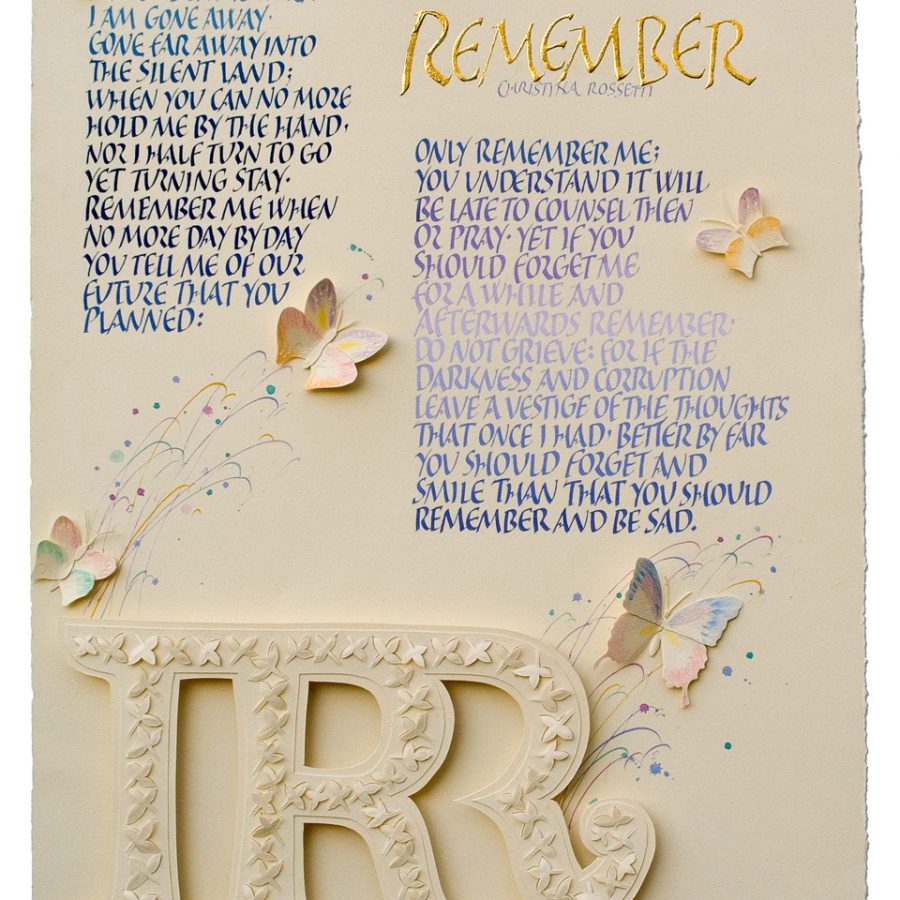 I AM GONE AWAY·
GONE FAR AWAY INTO
THE SILENT LAND;
WHEN YOU CAN NO MORE
HOLD ME BY THE HAND·
NOR I HALF TURN TO GO
YET TURNING STAY·
REMEMBER ME WHEN
NO MORE DAY BY DAY
YOU TELL ME OF OUR
FUTURE THAT YOU
PLANNED:
REMEMBER
CHRISTINA ROSSETTI
ONLY REMEMBER ME;
YOU UNDERSTAND IT WILL
BE LATE TO COUNSEL THEN
OR PRAY· YET IF YOU
SHOULD FORGET ME
FOR A WHILE AND
AFTERWARDS REMEMBER·
DO NOT GRIEVE: FOR IF THE
DARKNESS AND CORRUPTION
LEAVE A VESTIGE OF THE THOUGHTS
THAT ONCE I HAD· BETTER BY FAR
YOU SHOULD FORGET AND
SMILE THAN THAT YOU SHOULD
REMEMBER AND BE SAD.